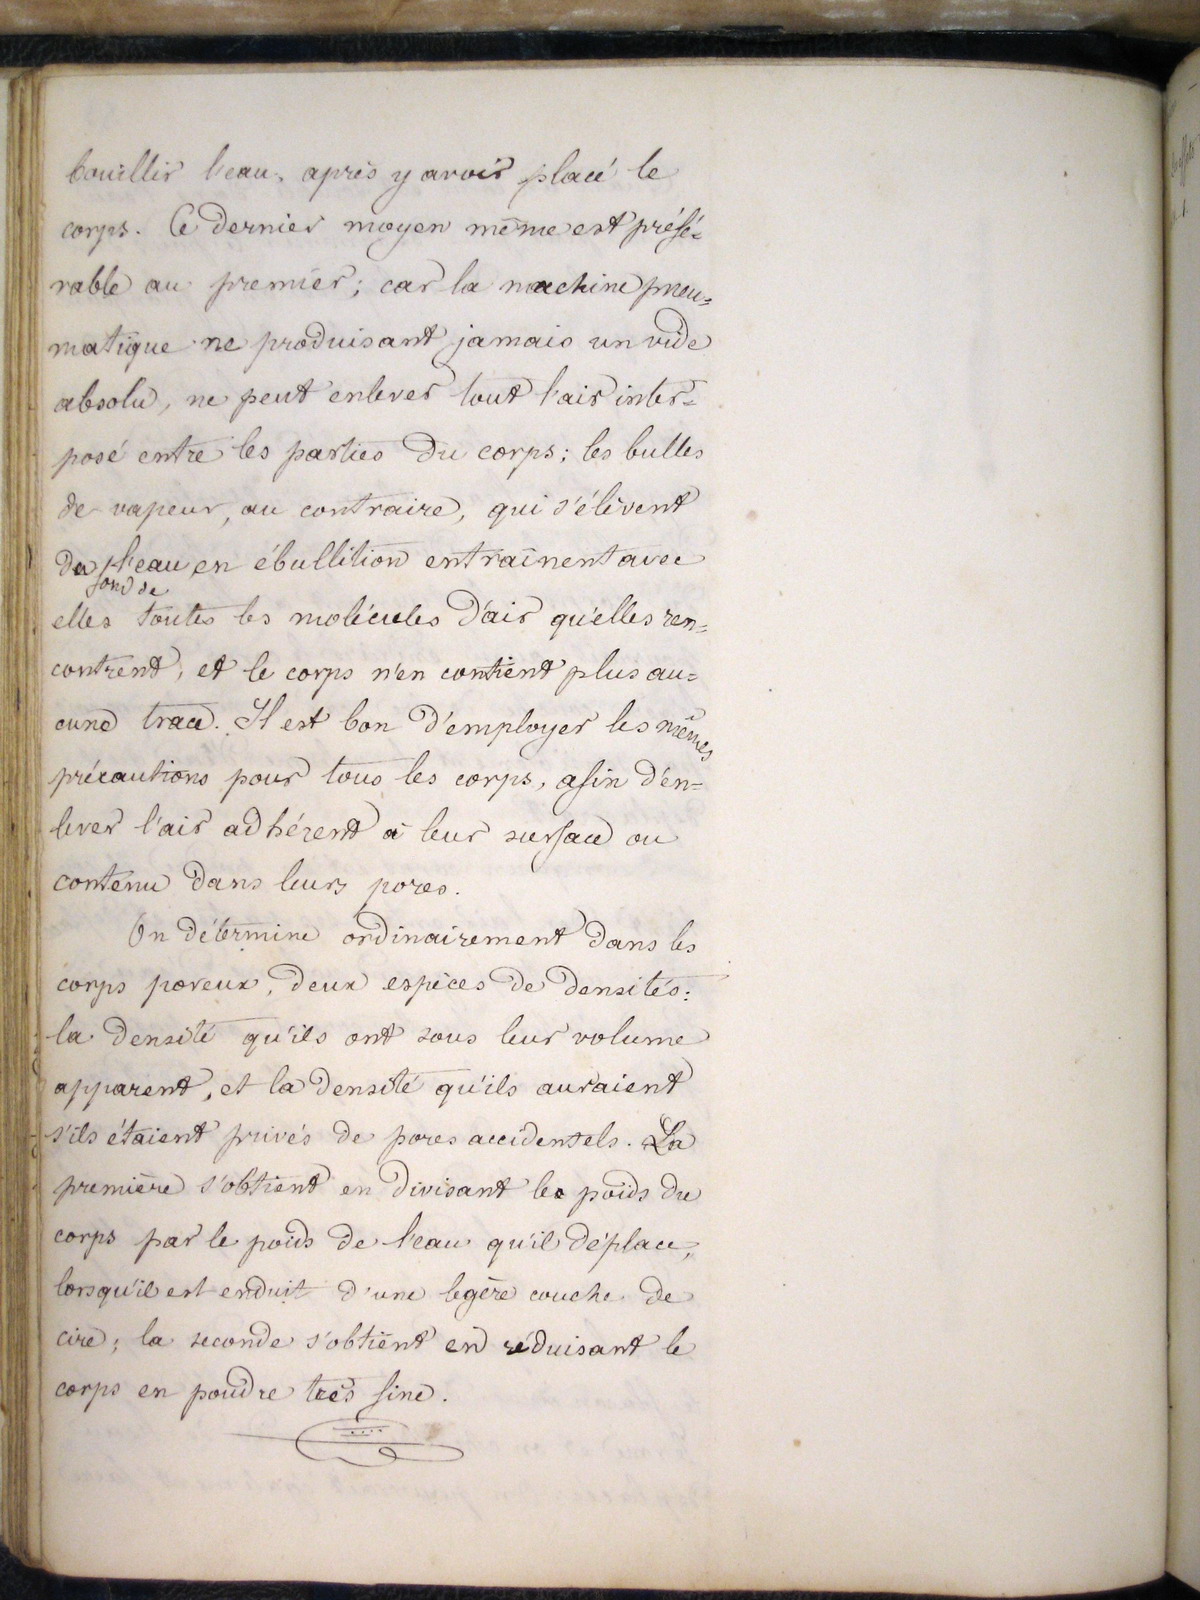 bouillir l'eau, après y avoir placé le
corps. Ce dernier moyen même est préfé=
rable au premier; car la machine pneu=
matique ne produisant jamais un vide
absolu, ne peut enlever tout l'air inter=
posé entre les parties du corps; les bulles
de vapeur, au contraire, qui s'élèvent
du l'eau en ébullition entraînent avec
fond de
elles toutes les molécules d'air qu'elles ren=
contrent, et le corps n'en contient plus au=
cune trace. Il est bon d'employer les mêmes
précautions pour tous les corps, afin d'en=
lever l'air adhérent à leur surface ou
contenu dans leurs pores.
On détermine ordinairement dans les
corps poreux, deux espèces de densités:
la densité qu'ils ont sous leur volume
apparent, et la densité qu'ils auraient
s'ils étaient privés de pores accidentels. La
première s'obtient en divisant le poids du
corps par le poids de l'eau qu'il déplace,
lorsqu'il est enduit d'une legère couche de
cire; la seconde s'obtient en réduisant le
corps en poudre très fine.